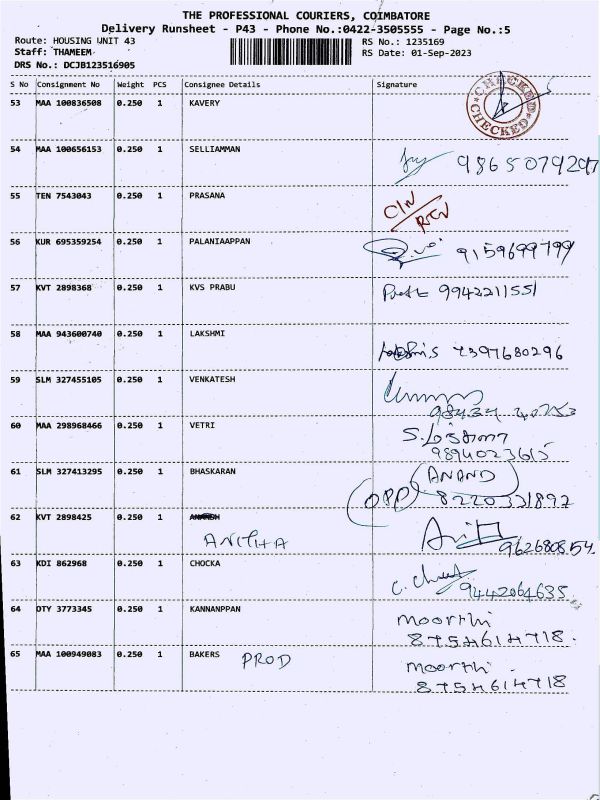 THE PROFESSIONAL COURIERS, COIMBATORE
Delivery Runsheet - P43 - Phone No.:0422-3505555 - Page No.:5
Route: HOUSING UNIT 43 RS No.: 1235169
Staff: THAMEEM RS Date: 01-Sep-2023
DRS No.: DCJB123516905
S No Consignment No Weight PCS Consignee Details Signature
53 MAA 100836508 0.250 1 KAVERY CHECKED CHECKED
54 MAA 100656153 0.250 1 SELLIAMMAN 9865079297
55 TEN 7543043 0.250 1 PRASANA
56 KUR 695359254 0.250 1 PALANIAAPPAN 9159699799
57 KVT 2898368 0.250 1 KVS PRABU 9942211551
58 MAA 943600740 0.250 1 LAKSHMI 7397680296
59 SLM 327455105 0.250 1 VENKATESH
60 MAA 298968466 0.250 1 VETRI
9894023615
61 SLM 327413295 0.250 1 BHASKARAN (ANAND)
(OPP) 8220331892
62 KVT 2898425 0.250 1
ANITHA
63 KDI 862968 0.250 1 CHOCKA
9442064635
64 OTY 3773345 0.250 1 KANNANPPAN moorthi
8754614718.
65 MAA 100949083 0.250 1 BAKERS PROD moorthi.
8754614718